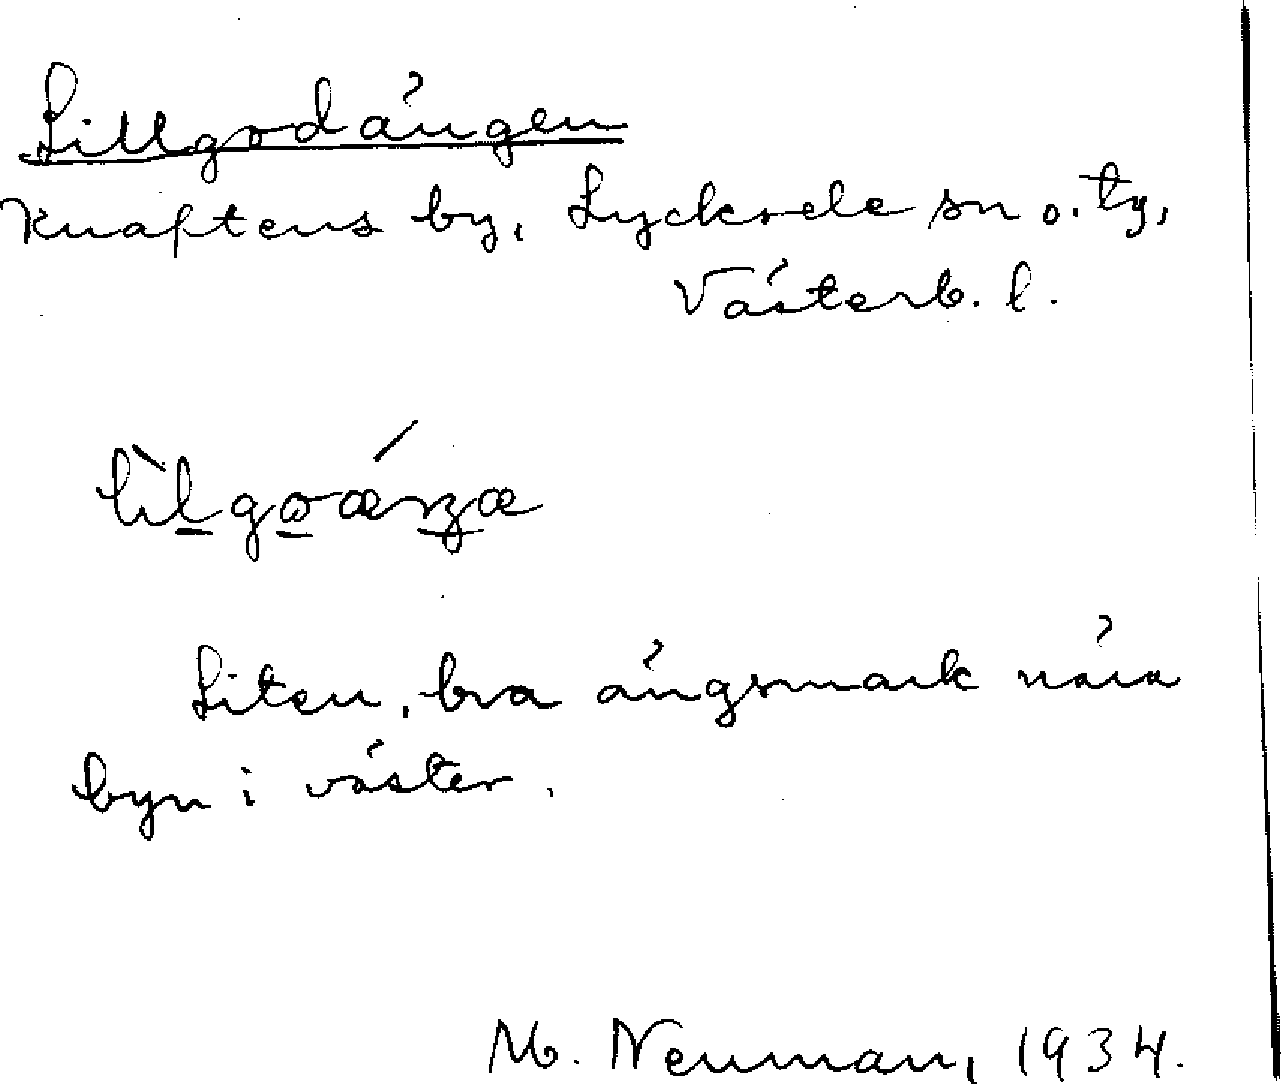 Lillgodängen
Knaftens by, Lycksele sn o. ty,
Västerb. l.
Liten, bra ängsmark nära
byn i väster.
M. Neuman, 1934.